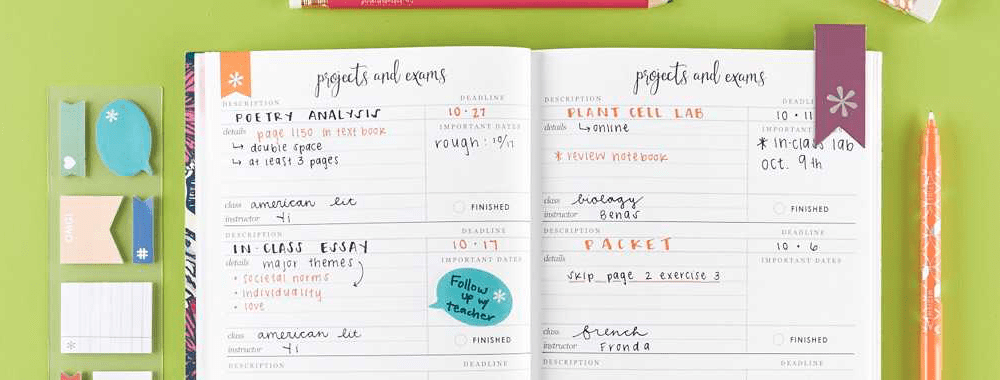 projects and exams
DESCRIPTION
DEADLINE
POETRY ANALYSIS
10 · 27
details page 1150 in text book
IMPORTANT DATES
↳ double space
rough: 10/17
↳ at least 3 pages
class american lit
instructor Yi
FINISHED
DESCRIPTION
DEADLINE
IN-CLASS ESSAY
10 · 17
details major themes
IMPORTANT DATES
• societal norms
• individuality
• love
Follow
up w/
teacher
class american lit
instructor Yi
FINISHED
DESCRIPTION
DEADLINE
projects and exams
DESCRIPTION
DEADL
PLANT CELL LAB
10 · 11
details ↳ online
IMPORTANT DATES
* review notebook
* in-class lab
oct. 9th
class biology
instructor Benas
FINISHED
DESCRIPTION
DEADLINE
PACKET
10 · 6
details
IMPORTANT DATES
skip page 2 exercise 3
class french
instructor Fronda
FINISHED
DESCRIPTION
DEADLINE
#